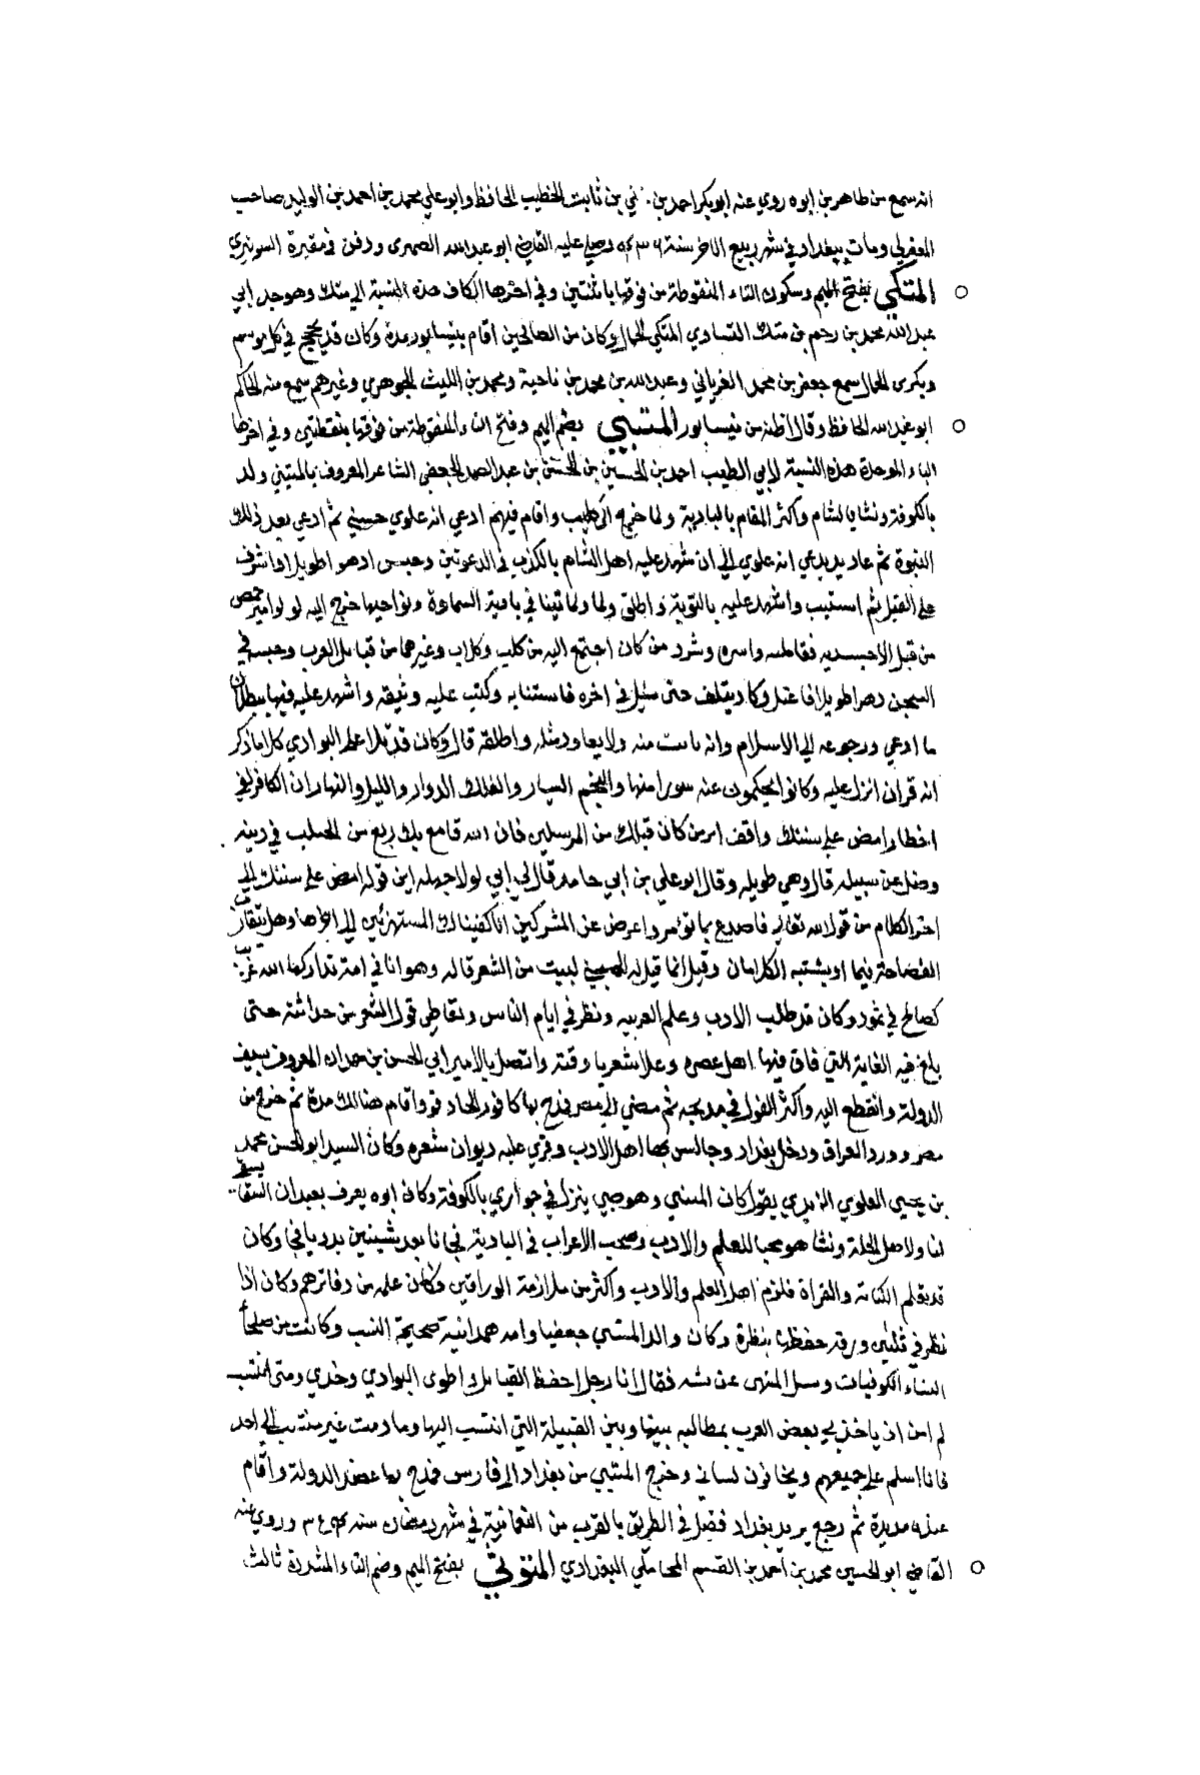 انه سمع من طاهر بن ابوه روي عنه ابو بكر احمد بن علي بن ثابت الخطيب الحافظ وابو علي محمد بن احمد بن الوليد صاحب
ومات ببغداد في شهر ربيع الاخر سنة وصلي عليه القاضي ابو عبدالله الصمري ودفن في مقبرة الشونيزي
المتكي بفتح الميم وسكون التاء المنقوطة من فوقها باثنتين وفي اخرها الكاف هذه النسبة الي متك وهو جد ابي
عبدالله محمد بن رحم بن متك المتكي الحمال وكان من الصالحين اقام بنيسابور مدة وكان قد يحج في كل موسم
ويكري الحمال سمع جعفر بن محمد الفرياني وعبدالله بن محمد بن ناحية ومحمد بن الليث الجوهري وغيرهم سمع منه الحاكم
ابو عبدالله الحافظ وقال اظنه من نيسابور المتنبي بضم الميم وفتح التاء المنقوطة من فوقها بنقطتين وفي اخرها
الباء الموحدة هذه النسبة لابي الطيب احمد بن الحسين بن الحسن بن عبد الصمد الجعفي الشاعر المعروف بالمتنبي ولد
بالكوفة ونشا بالشام واكثر المقام بالبادية ولما خرج الي كليب واقام فيهم ادعي انه علوي حسني ثم ادعي بعد ذلك
النبوة ثم عاد يدعي انه علوي الي ان شهد عليه اهل الشام بالكذب في الدعوتين وحبس دهرا طويلا واشرف
علي القتل ثم استتيب واشهد عليه بالتوبة واطلق ولما تنبا في بادية السماوة ونواحيها خرج اليه لولو امير حمص
من قبل الاخشيديه فقاتله واسره وشرد من كان اجتمع اليه من كلب وكلاب وغيرهما من قبايل العرب وحبسه في
السجن دهرا طويلا فاعتل وكاد يتلف حتى سئل في امره فاستتابه وكتب عليه وثيقه واشهد عليه فيها ببطلان
ما ادعي ورجوعه الي الاسلام وانه تايب منه ولا يعاود مثله واطلقه قال وكان قد تلا علي البوادي كلاما ذكر
انه قران انزل عليه وكانوا يحكون عنه سورا منها والنجم السيار والفلك الدوار والليل والنهار ان الكافر لفي
اخطار امض علي سننك واقف اثر من كان قبلك من المرسلين فان الله قامع بك زيغ من الحد في دينه
وضل عن سبيله قال وهي طويله وقال ابو علي بن ابي حامد قال لي ابي لولا جهله اين قوله امض علي سننك الي
اخر الكلام من قول الله تعالي فاصدع بما تؤمر واعرض عن المشركين انا كفيناك المستهزئين الي اخرها وهل تتقارب
الفصاحة فيما او يشتبه الكلامان وقيل انما قيل له المتنبي لبيت من الشعر قاله وهو انا في امة تداركها الله غريب
كصالح في ثمود وكان قد طلب الادب وعلم العربيه ونظر في ايام الناس وتعاطي قول الشعر من حداثته حتى
بلغ فيه الغاية التي فاق فيها اهل عصره وعلا شعرا وقته واتصل بالامير ابي الحسن بن حمدان المعروف بسيف
الدولة وانقطع اليه واكثر القول في مديحه ثم مضي الي مصر فمدح بها كافور الخادم واقام هنالك مدة ثم خرج من
مصر وورد العراق ودخل بغداد وجالس بها اهل الادب وقري عليه ديوان شعره وكان السيد ابو الحسن محمد
بن يحيى العلوي الزيدي يقول كان المتنبي وهو صبي ينزل في جواري بالكوفة وكان ابوه يعرف بعبدان السقا يسقي
لنا ولاهل المحلة ونشا هو محبا للعلم والادب وصحب الاعراب في البادية فجانا بعد سنين بدويا قحا وكان
قد تعلم الكتابة والقراة فلزم اهل العلم والادب واكثر من ملازمة الوراقين وكان علمه من دفاترهم وكان اذا
نظر في ثلثين ورقة حفظها بنظرة وكان والد المتنبي جعفيا وامه همدانية صحيحة النسب وكانت من صلحا
النساء الكوفيات وسئل المتنبي عن نسبه فقال انا رجل احفظ القبايل واطوى البوادي وحدي ومتى انتسب
لم امن ان ياخذني بعض العرب بمطالبه بينها وبين القبيلة التي انتسب اليها وما دمت غير منتسب الي احد
فانا اسلم علي جميعهم ويخافون لساني وخرج المتنبي من بغداد الي فارس فمدح بها عضد الدولة واقام
عنده مديدة ثم رجع يريد بغداد فقتل في الطريق بالقرب من النعمانية في شهر رمضان سنه وروي عنه
القاضي ابو الحسين محمد بن احمد بن القسم المحاملي البغدادي المتوثي بفتح الميم وضم التاء المشددة ثالث